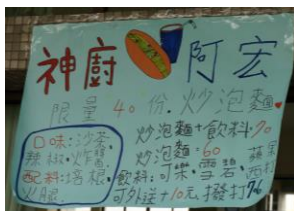 神廚 阿宏
限量40份.炒泡麵
口味:沙茶.
辣椒.炸醬
配料:培根.
火腿.
炒泡麵+飲料:70
炒泡麵:60
飲料:可樂.雪碧.蘋果西打
可外送+10元.撥打76